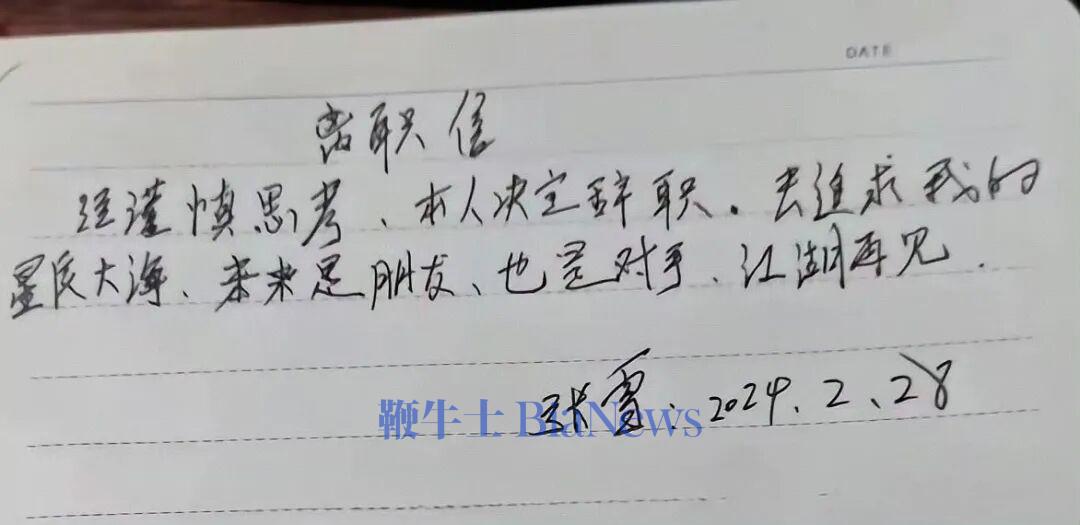 DATE
离职信
经谨慎思考、本人决定辞职。去追求我的
星辰大海、未来是朋友、也是对手、江湖再见.
张雪. 2024.2、28
鞭牛士 BiaNews